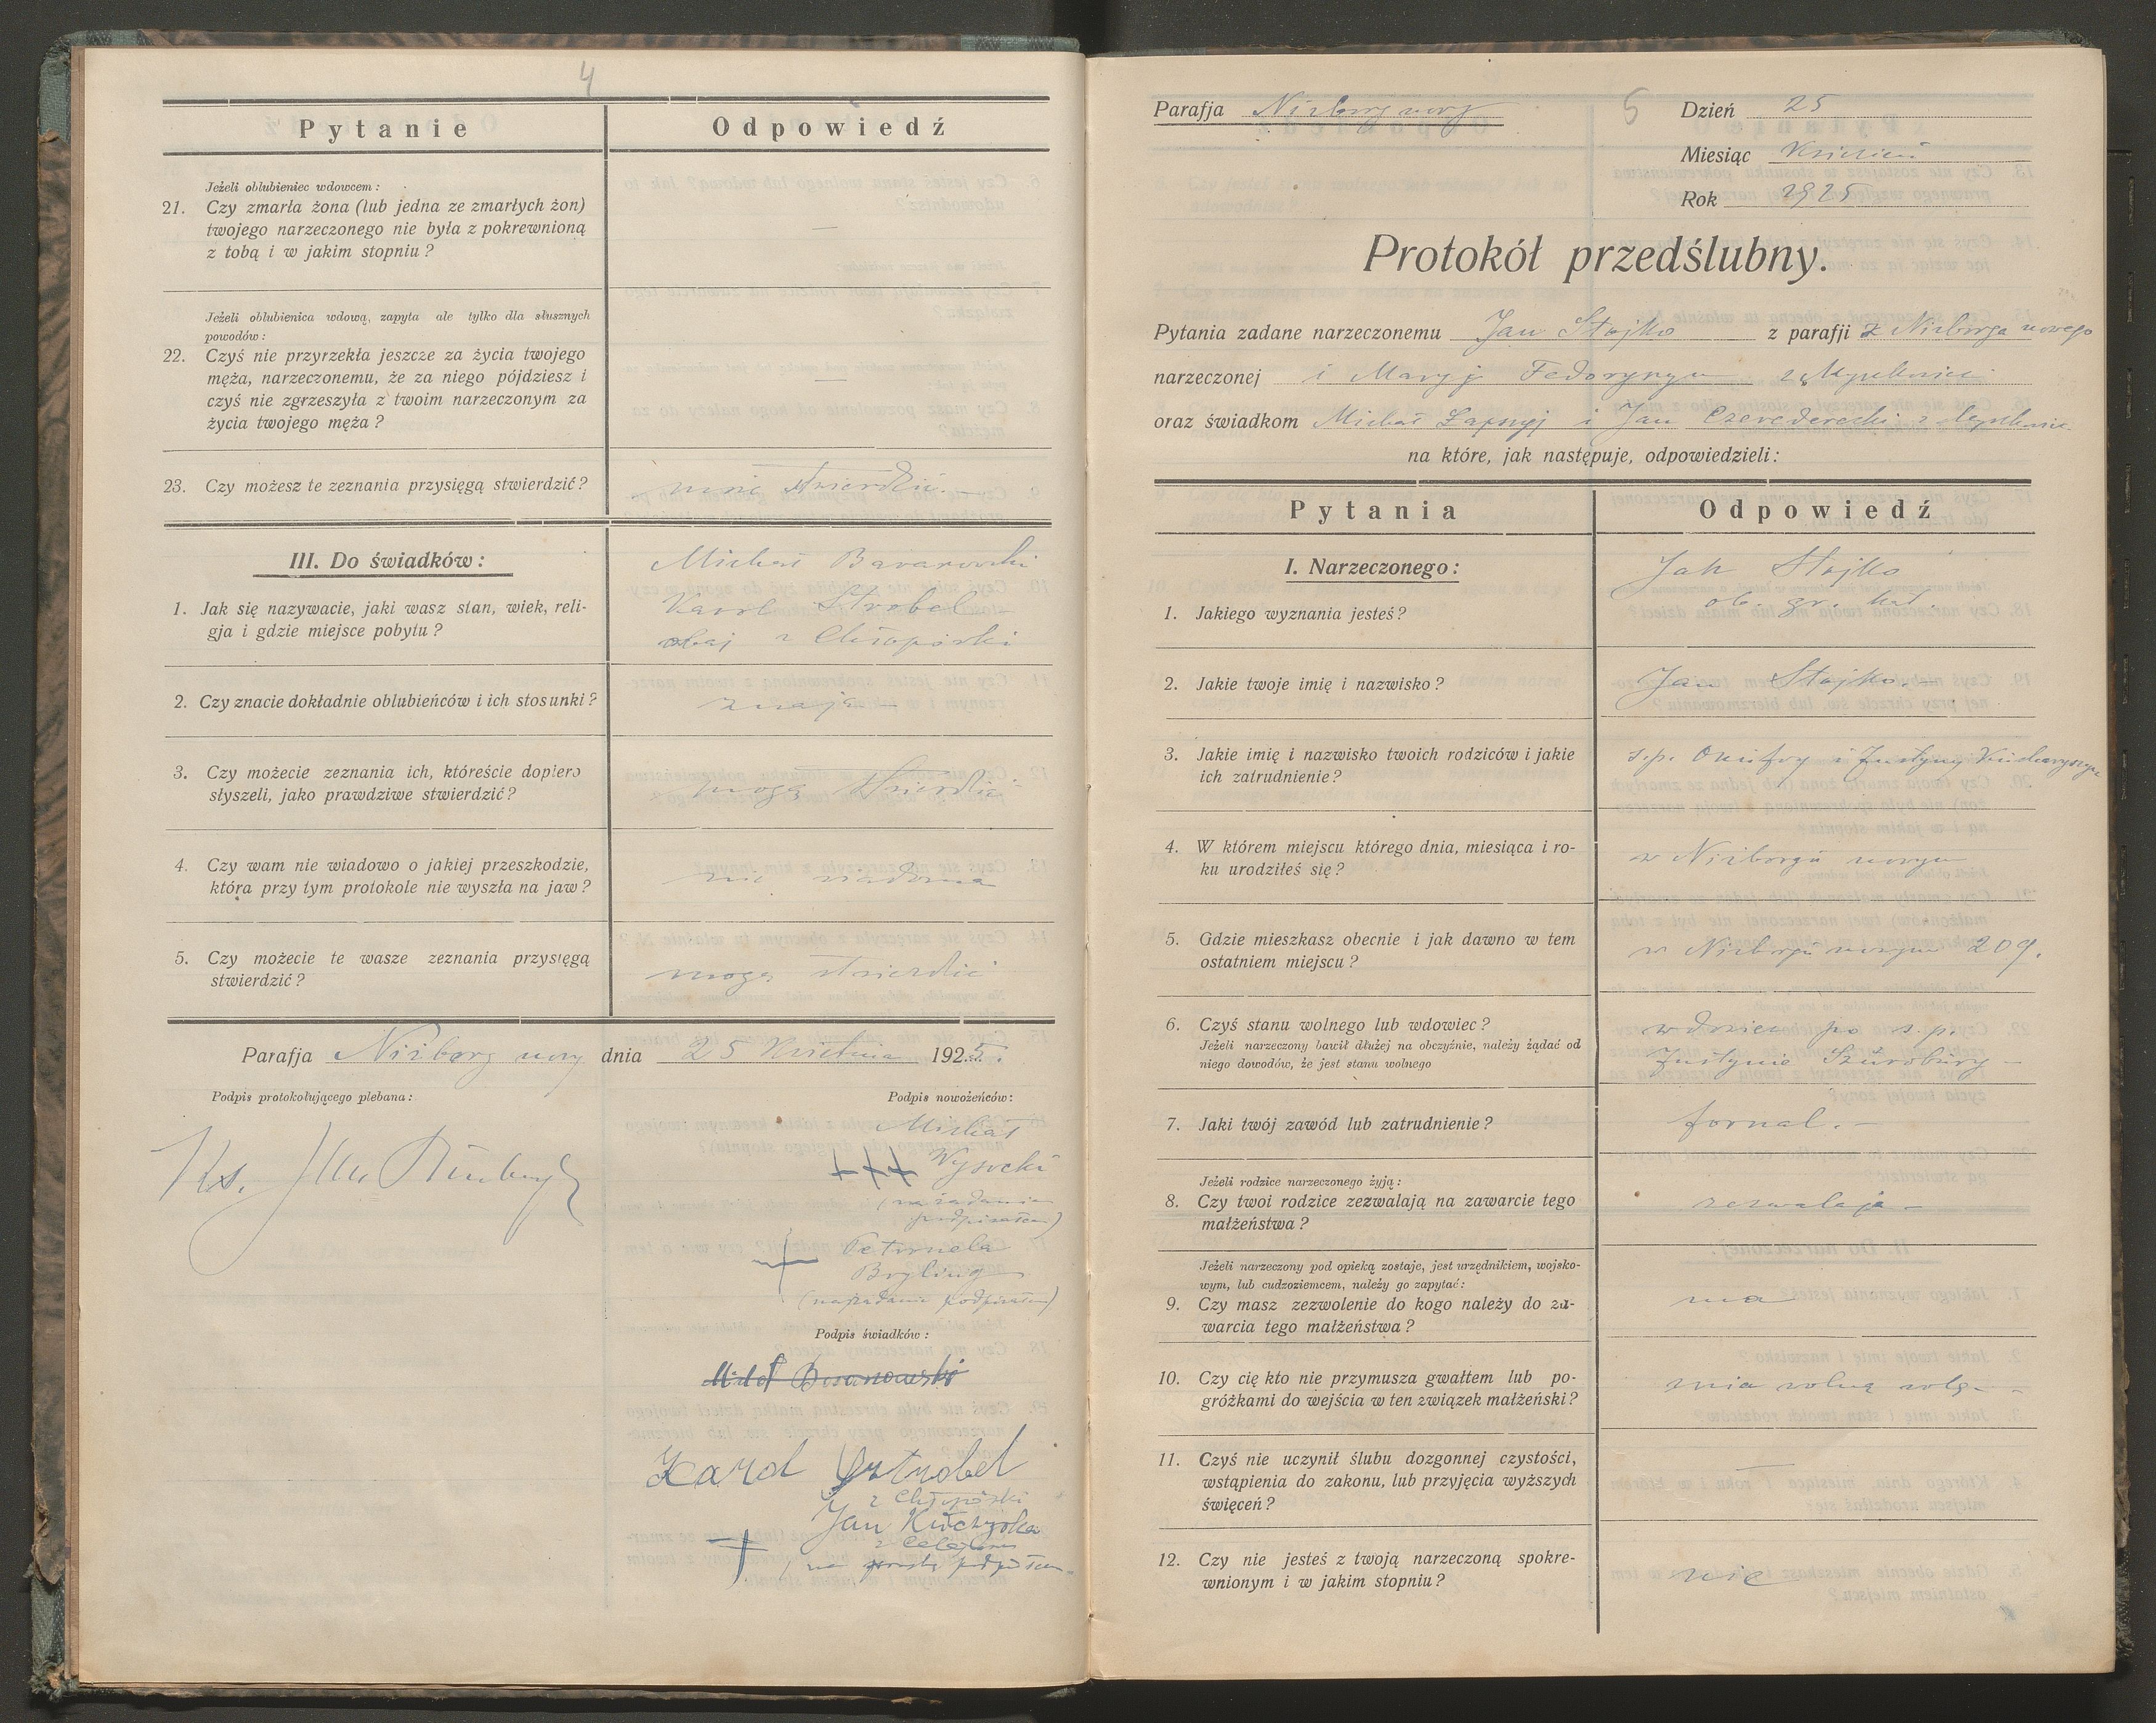 4
Pytanie
Odpowiedź
Jeżeli oblubieniec wdowcem:
21. Czy zmarła żona (lub jedna ze zmarłych żon)
twojego narzeczonego nie była z pokrewnioną
z tobą i w jakim stopniu?
—
Jeżeli oblubienica wdową, zapyta ale tylko dla słusznych
powodów:
22. Czyś nie przyrzekła jeszcze za życia twojego
męża, narzeczonemu, że za niego pójdziesz i
czyś nie zgrzeszyła z twoim narzeczonym za
życia twojego męża?
—
23. Czy możesz te zeznania przysięgą stwierdzić?
stwierdzić.
III. Do świadków:
Michał Baranowski
1. Jak się nazywacie, jaki wasz stan, wiek, reli-
gja i gdzie miejsce pobytu?
Karol Strobel
obaj z Chłopówki
2. Czy znacie dokładnie oblubieńców i ich stosunki?
znają
3. Czy możecie zeznania ich, któreście dopiero
słyszeli, jako prawdziwe stwierdzić?
mogą stwierdzić
4. Czy wam nie wiadowo o jakiej przeszkodzie,
która przy tym protokole nie wyszła na jaw?
nie wiadoma
5. Czy możecie te wasze zeznania przysięgą
stwierdzić?
mogą stwierdzić
Parafja Niżborg nowy dnia 25 Kwietnia 1925.
Podpis protokołującego plebana:
Podpis nowożeńców:
Ks. Jan
Michał
+++ Wysocki
(na żądanie
podpisałem)
+ Petronela
Bryling
(na żądanie podpisałem)
Podpis świadków:
Michał Baranowski
Karol Sztrobel
z Chłopówki
Jan
(na prośbę podpisałem
Parafja Niżborg nowy
5
Dzień 25
Miesiąc Kwiecień
Rok 1925
Protokół przedślubny.
Pytania zadane narzeczonemu Jan Stojko z parafji z Niżborga nowego
narzeczonej i Maryj Fedoryszyn
oraz świadkom Michał Łapszyj i Jan
na które, jak następuje, odpowiedzieli:
Pytania
Odpowiedź
I. Narzeczonego:
Jan Stojko
1. Jakiego wyznania jesteś?
ob. gr. kat.
2. Jakie twoje imię i nazwisko?
Jan Stojko. —
3. Jakie imię i nazwisko twoich rodziców i jakie
ich zatrudnienie?
s.p. Onufry i Justyny
4. W którem miejscu którego dnia, miesiąca i ro-
ku urodziłeś się?
w Niżborgu nowym
5. Gdzie mieszkasz obecnie i jak dawno w tem
ostatniem miejscu?
w Niżborgu nowym 209.
6. Czyś stanu wolnego lub wdowiec?
Jeżeli narzeczony bawił dłużej na obczyźnie, należy żądać od
niego dowodów, że jest stanu wolnego
wdowiec po s.p.
Justynie
7. Jaki twój zawód lub zatrudnienie?
fornal. —
Jeżeli rodzice narzeczonego żyją:
8. Czy twoi rodzice zezwalają na zawarcie tego
małżeństwa?
zezwalają —
Jeżeli narzeczony pod opieką zostaje, jest urzędnikiem, wojsko-
wym, lub cudzoziemcem, należy go zapytać:
9. Czy masz zezwolenie do kogo należy do za-
warcia tego małżeństwa?
ma
10. Czy cię kto nie przymusza gwałtem lub po-
gróżkami do wejścia w ten związek małżeński?
ma wolną wolę
11. Czyś nie uczynił ślubu dozgonnej czystości,
wstąpienia do zakonu, lub przyjęcia wyższych
święceń?
12. Czy nie jesteś z twoją narzeczoną spokre-
wnionym i w jakim stopniu?
nie